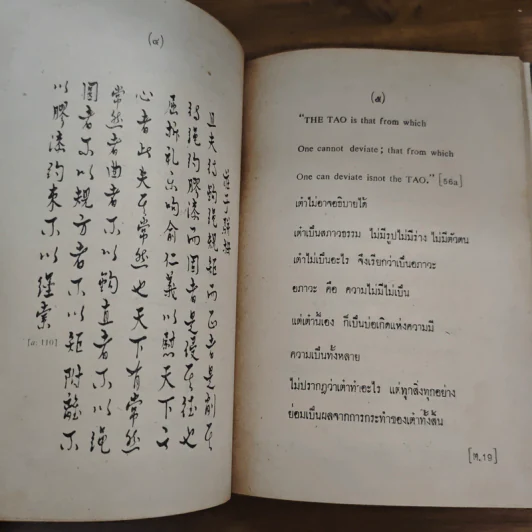 (๔)
莊子駢拇
且夫待鉤繩規矩而正者是削其
待繩約膠漆而固者是侵其德也
屈折礼樂呴俞仁義以慰天下之
心者此失其常然也天下有常然
常然者曲者不以鉤直者不以繩
圓者不以規方者不以矩附離不
以膠漆約束不以纆索
(๕)
"THE TAO is that from which
One cannot deviate; that from which
One can deviate isnot the TAO." [56a]
เต๋าไม่อาจอธิบายได้
เต๋าเป็นสภาวธรรม ไม่มีรูปไม่มีร่าง ไม่มีตัวตน
เต๋าไม่เป็นอะไร จึงเรียกว่าเป็นอภาวะ
อภาวะ คือ ความไม่มีไม่เป็น
แต่เต๋านี้เอง ก็เป็นบ่อเกิดแห่งความมี
ความเป็นทั้งหลาย
ไม่ปรากฏว่าเต๋าทำอะไร แต่ทุกสิ่งทุกอย่าง
ย่อมเป็นผลจากการกระทำของเต๋าทั้งสิ้น
[ห.19]